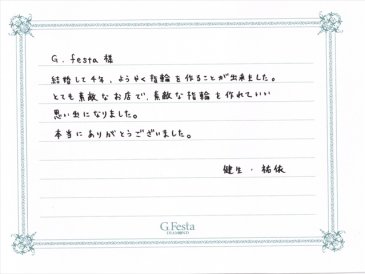 G. festa 様
結婚して4年、ようやく指輪を作ることが出来ました。
とても素敵なお店で、素敵な指輪を作れていい
思い出になりました。
本当にありがとうございました。
健生・祐依
G.Festa
DIAMOND